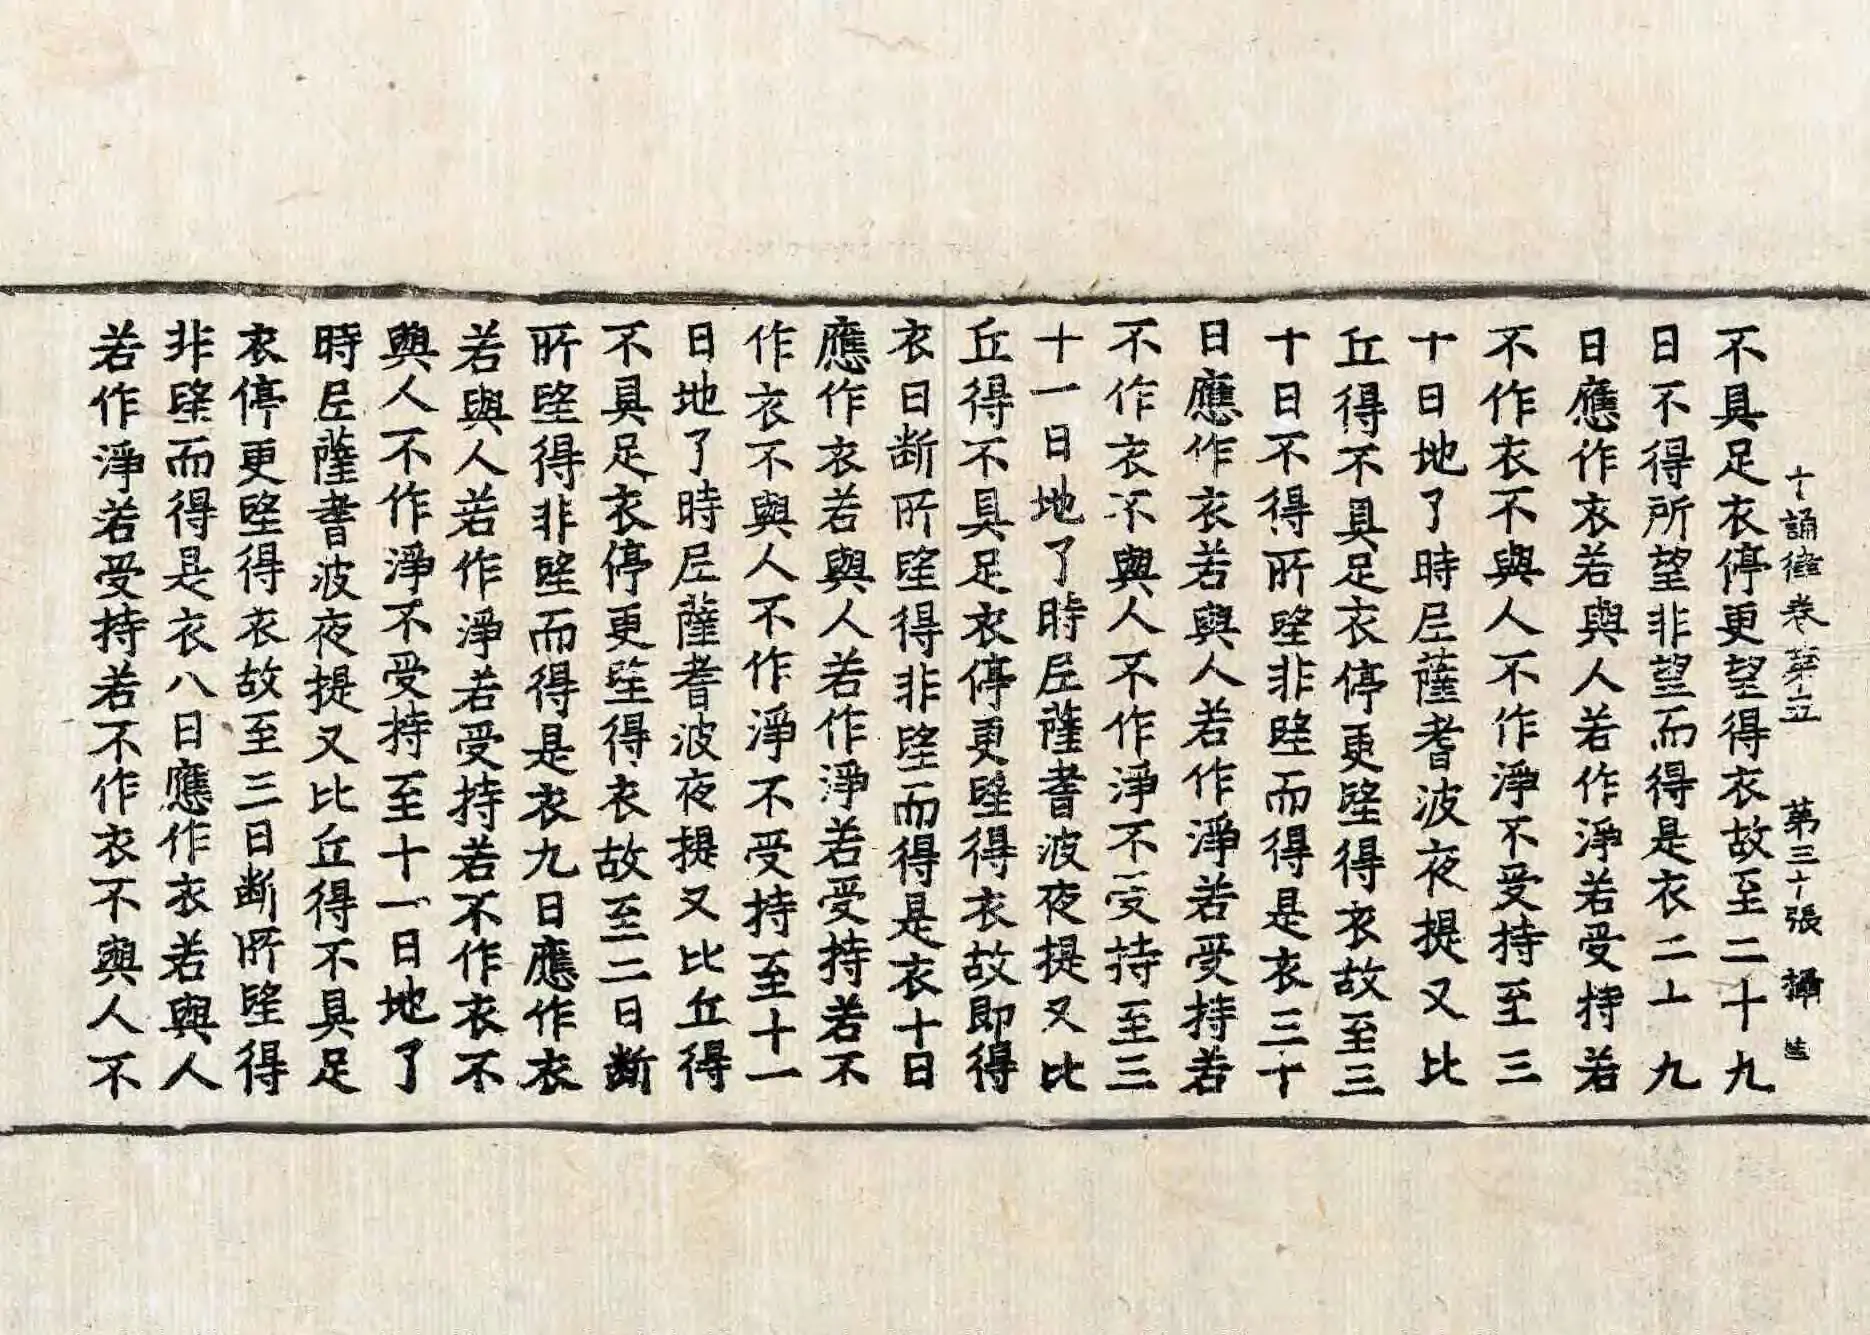 十誦律卷第五 第三十張 攝
不具足衣停更望得衣故至二十九
日不得所望非望而得是衣二十九
日應作衣若與人若作淨若受持若
不作衣不與人不作淨不受持至三
十日地了時尼薩耆波夜提又比
丘得不具足衣停更望得衣故至三
十日不得所望非望而得是衣三十
日應作衣若與人若作淨若受持若
不作衣不與人不作淨不受持至三
十一日地了時尼薩耆波夜提又比
丘得不具足衣停更望得衣故即得
衣日断所望得非望而得是衣十日
應作衣若與人若作淨若受持若不
作衣不與人不作淨不受持至十一
日地了時尼薩耆波夜提又比丘得
不具足衣停更望得衣故至二日断
所望得非望而得是衣九日應作衣
若與人若作淨若受持若不作衣不
與人不作淨不受持至十一日地了
時尼薩耆波夜提又比丘得不具足
衣停更望得衣故至三日断所望得
非望而得是衣八日應作衣若與人
若作淨若受持若不作衣不與人不